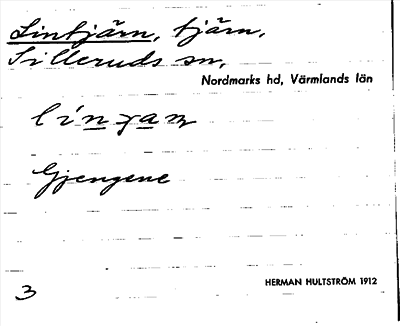 Lintjärn, tjärn,
Silleruds sn,
Nordmarks hd, Värmlands län
Gjengene
3
HERMAN HULTSTRÖM 1912